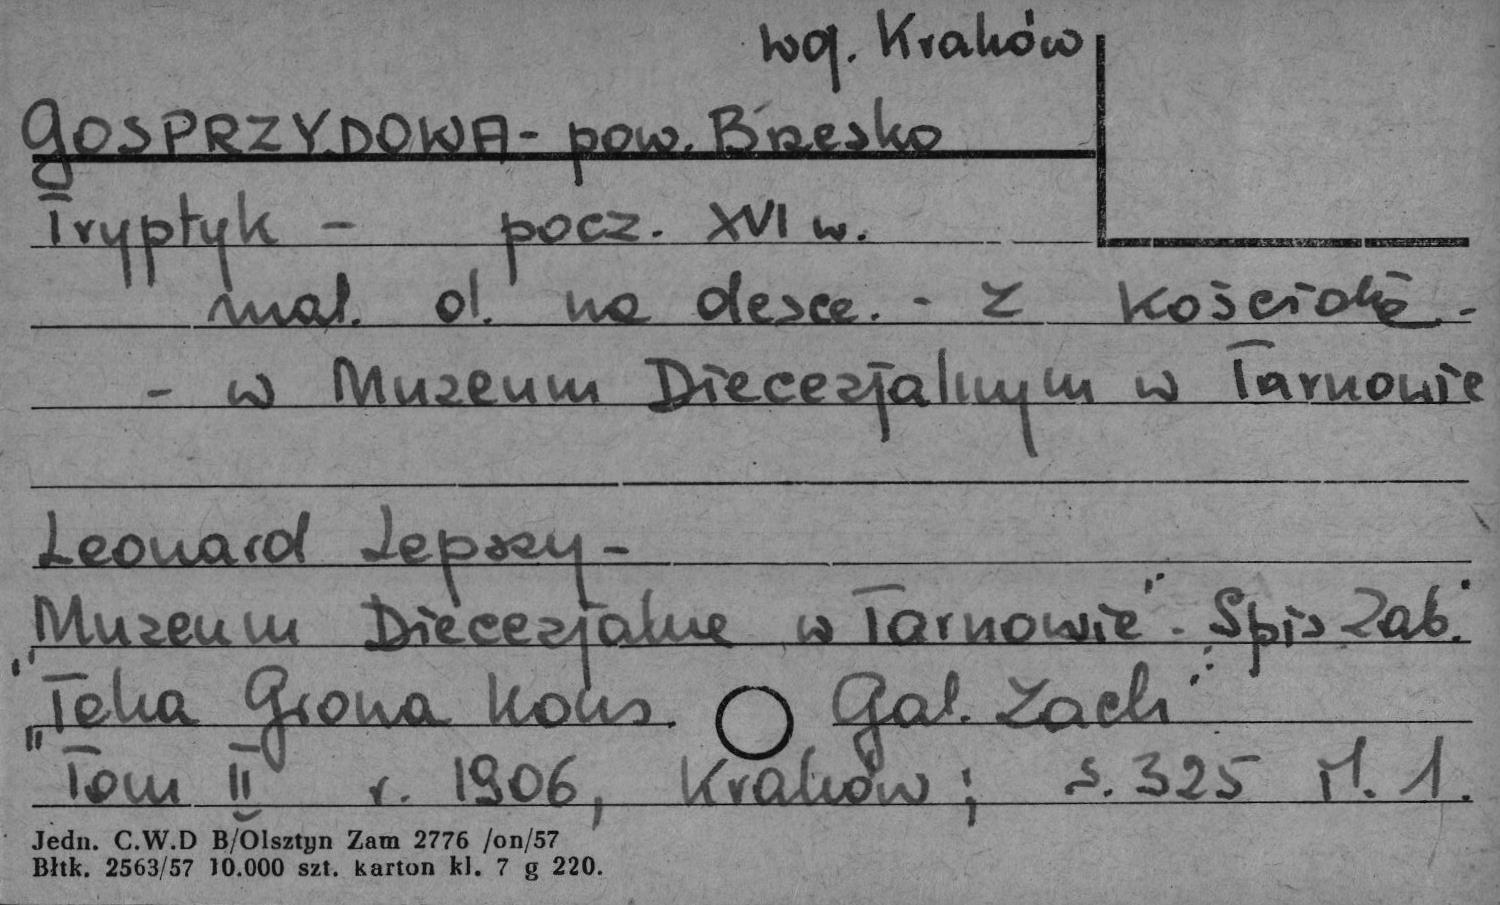 woj. Kraków
GOSPRZYDOWA - pow. Brzesko
Tryptyk - pocz. XVI w.
mal. ol. na desce. - z kościoła -
- w Muzeum Diecezjalnym w Tarnowie
Leonard Lepszy -
"Muzeum Diecezjalne w Tarnowie". Spis Zab."
"Teka Grona Kons. Gal. Zach"
Tom II r. 1906, Kraków; s. 325 il. 1.
Jedn. C.W.D B/Olsztyn Zam 2776 /on/57
Błtk. 2563/57 10.000 szt. karton kl. 7 g 220.